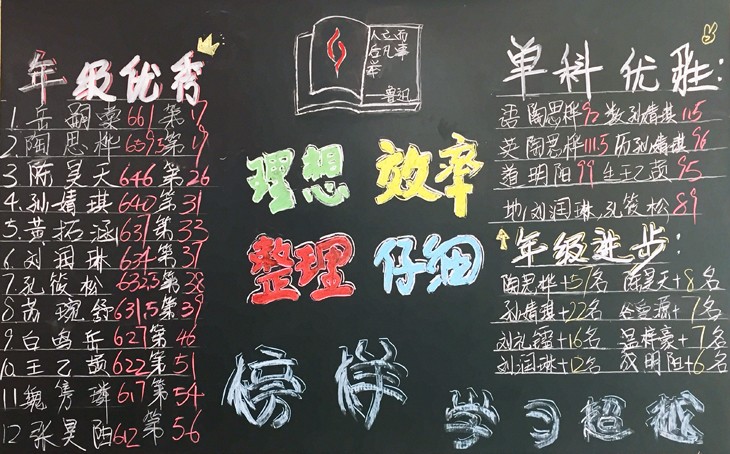 年级优秀
1. 岳 661 第17
2 陶思桦 659.5 第19
3 陈昊天 646 第26
4. 孙婧琪 640 第31
5. 黄拓涵 637 第33
6. 刘润琳 634 第37
7. 孔筱松 632.5 第38
8 婉舒 631.5 第39
9 白鸣岳 627 第46
10 王乙颉 622 第51
11 魏隽璘 617 第54
12 张昊阳 612 第56
人立而
后凡事
举
——鲁迅
理想 效率
整理 仔细
榜样
单科优胜:
语 陶思桦 数 孙婧琪 115
英 陶思桦 111.5 历 孙婧琪 96
明阳 99 生 王乙颉 95
地 刘润琳、孔筱松 89
年级进步:
陶思桦+57名 陈昊天+8名
孙婧琪+22名 +7名
刘礼 +16名 梓豪+7名
刘润琳+12名 明阳+6名
学习超